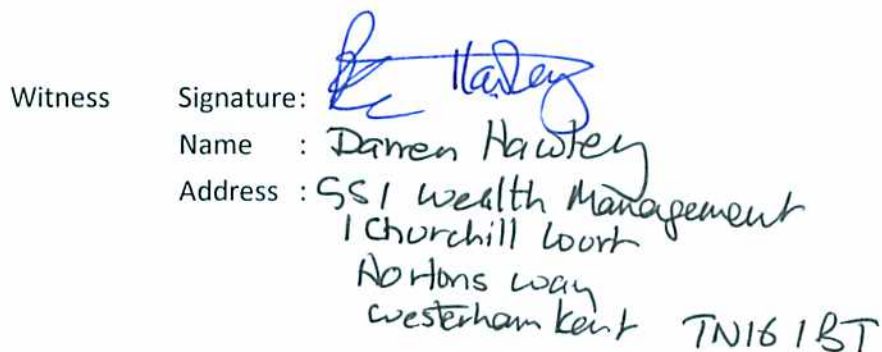 Witness Signature: Hawley
Name : Darren Hawley
Address : SSI Wealth Management
1 Churchill Court
Hortons Way
Westerham Kent TN16 1BT